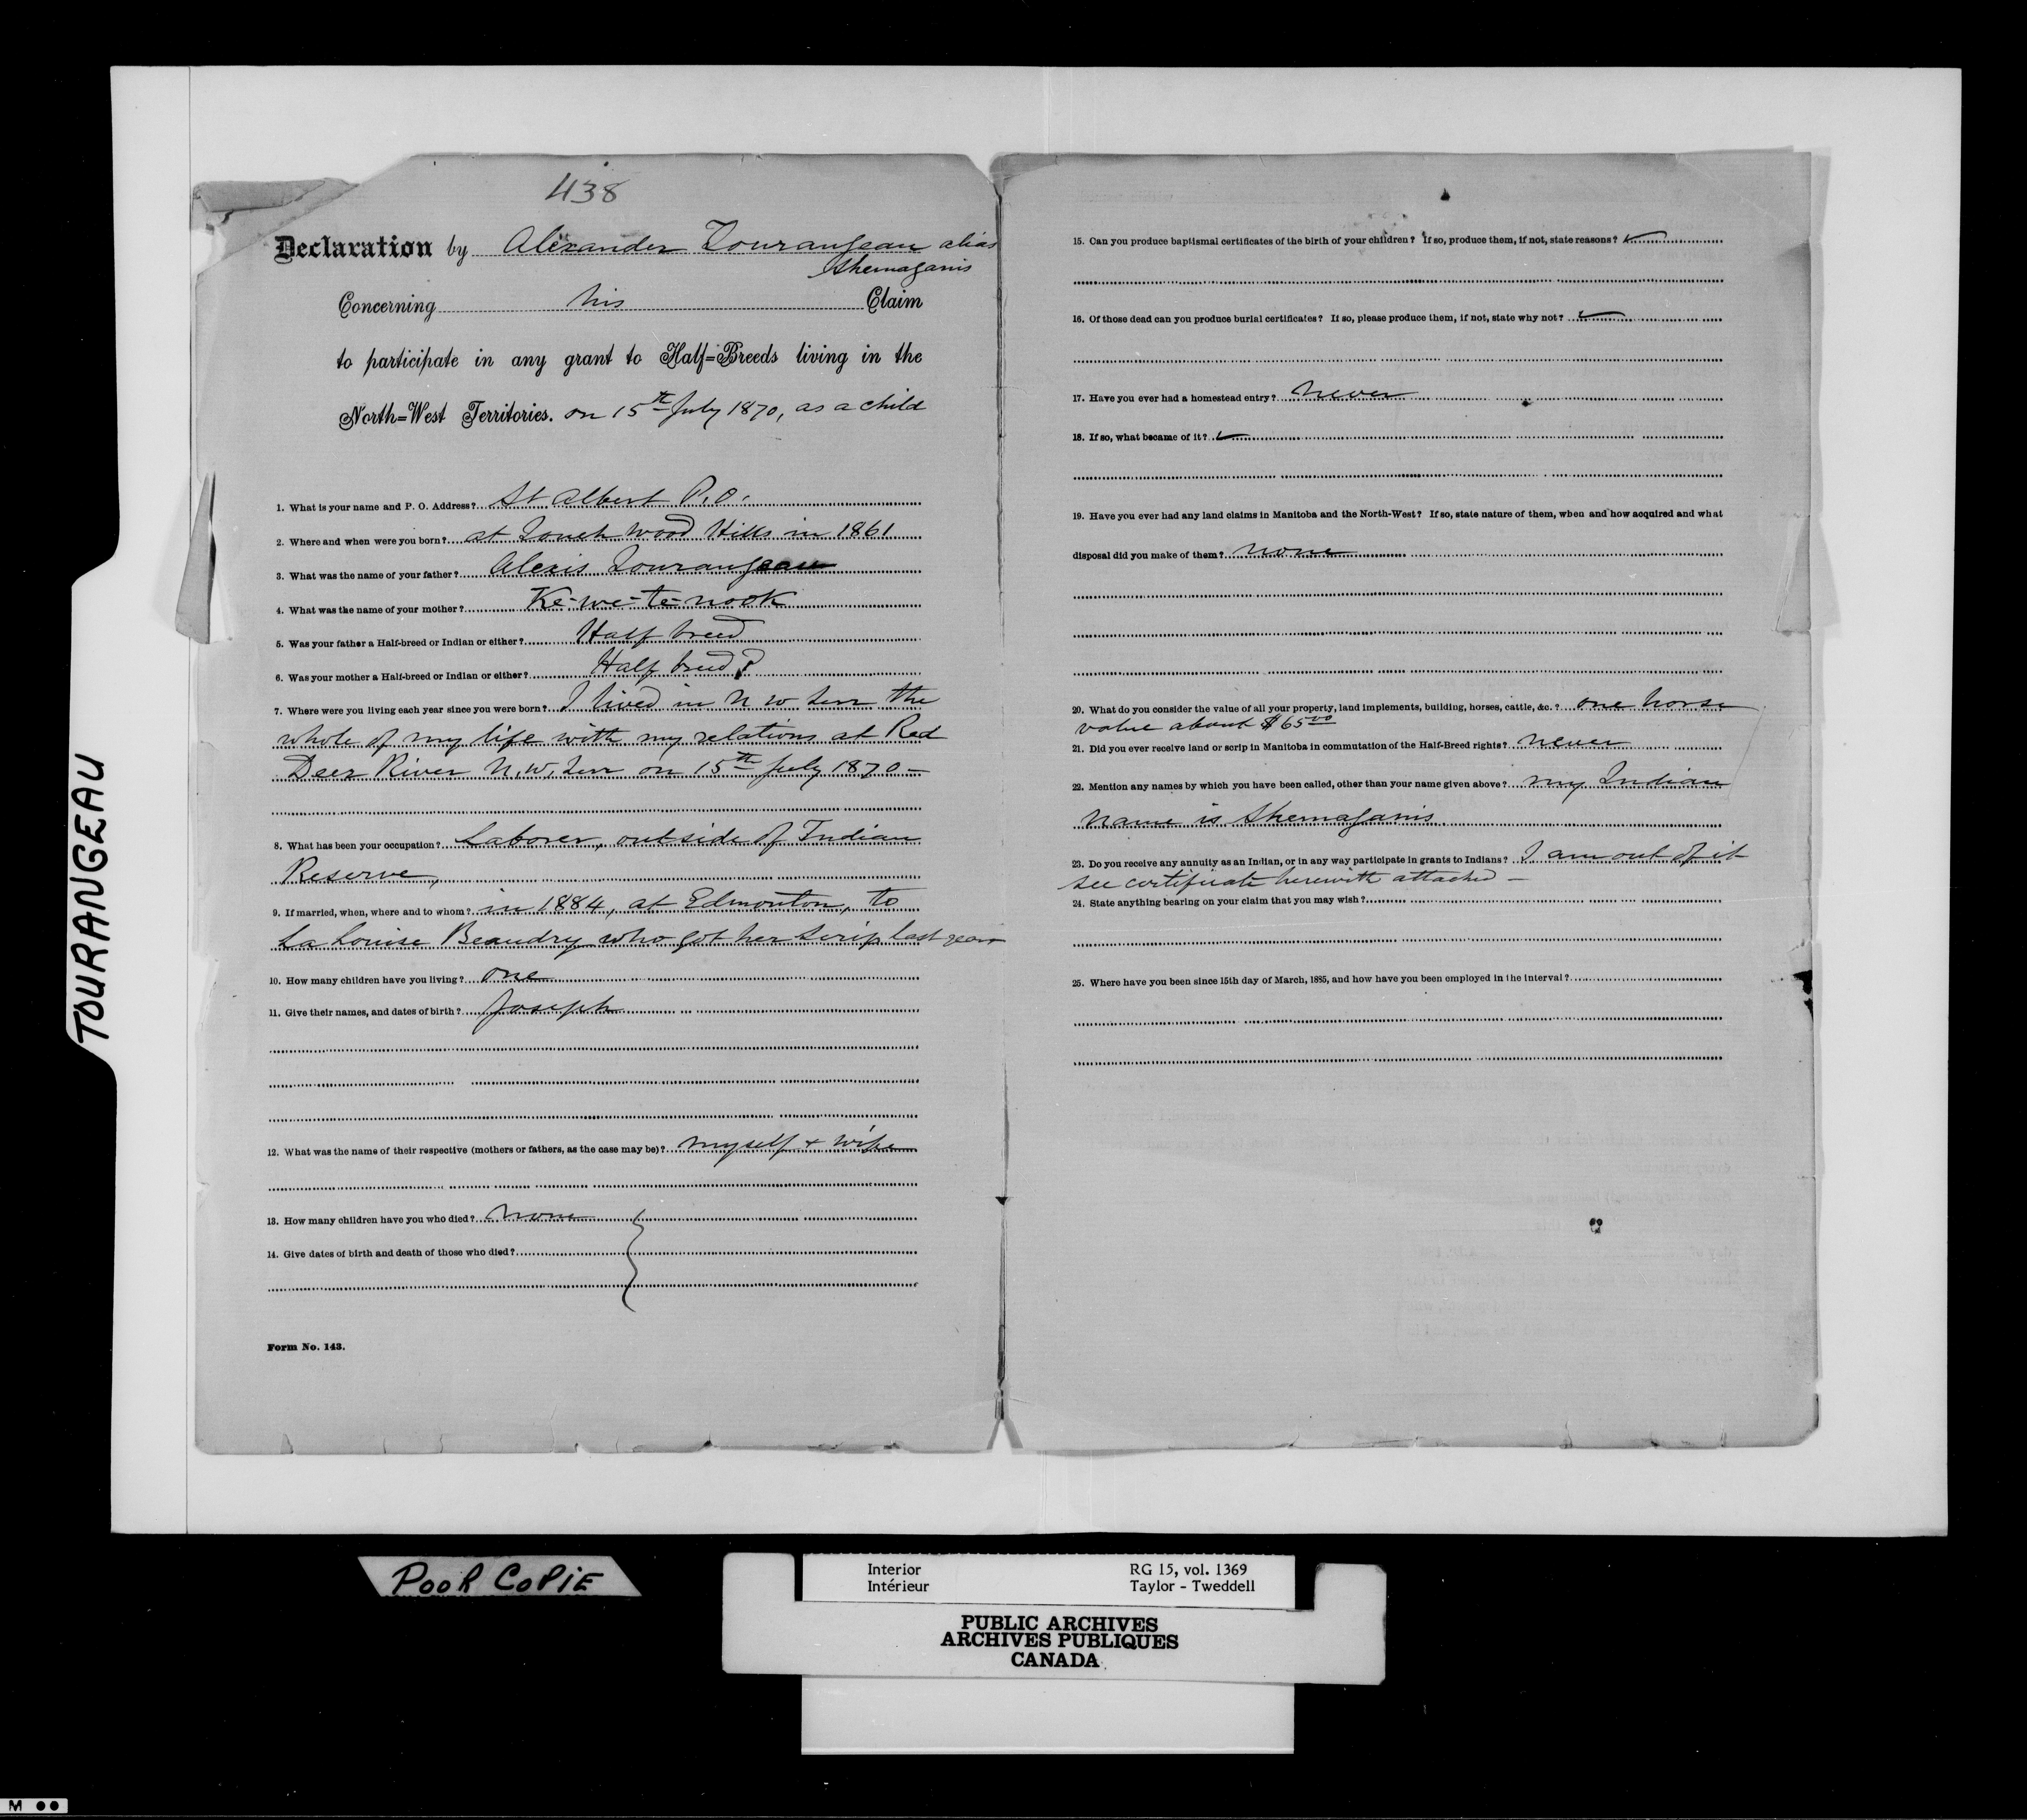 438
Declaration by Alexander Tourangeau alias
Shemaganis
Concerning his Claim
to participate in any grant to Half=Breeds living in the
North=West Territories. on 15th July 1870, as a child
1. What is your name and P. O. Address? St Albert P.O.
2. Where and when were you born? at Touch wood Hills in 1861
3. What was the name of your father? Alexis Tourangeau
4. What was the name of your mother? Ke-we-te-nook
5. Was your father a Half-breed or Indian or either? Half breed
6. Was your mother a Half-breed or Indian or either? Half breed?
7. Where were you living each year since you were born? I lived in N W Terr the
whole of my life with my relations at Red
Deer River N.W. Terr on 15th July 1870 —
8. What has been your occupation? Laborer, outside of Indian
Reserve,
9. If married, when, where and to whom? in 1884, at Edmonton, to
La Louise Beaudry who got her scrip last year
10. How many children have you living? one
11. Give their names, and dates of birth? Joseph
12. What was the name of their respective (mothers or fathers, as the case may be)? myself + wife
13. How many children have you who died? none
14. Give dates of birth and death of those who died?
Form No. 143.
15. Can you produce baptismal certificates of the birth of your children? If so, produce them, if not, state reasons?
16. Of those dead can you produce burial certificates? If so, please produce them, if not, state why not?
17. Have you ever had a homestead entry? never
18. If so, what became of it?
19. Have you ever had any land claims in Manitoba and the North-West? If so, state nature of them, when and how acquired and what
disposal did you make of them? none
20. What do you consider the value of all your property, land implements, building, horses, cattle, &c.? one horse
value about $65 00
21. Did you ever receive land or scrip in Manitoba in commutation of the Half-Breed rights? never
22. Mention any names by which you have been called, other than your name given above? my Indian
name is Shemaganis
23. Do you receive any annuity as an Indian, or in any way participate in grants to Indians? I am out of it
see certificate herewith attached —
24. State anything bearing on your claim that you may wish?
25. Where have you been since 15th day of March, 1885, and how have you been employed in the interval?
TOURANGEAU
POOR COPIE
Interior RG 15, vol. 1369
Intérieur Taylor - Tweddell
PUBLIC ARCHIVES
ARCHIVES PUBLIQUES
CANADA
M